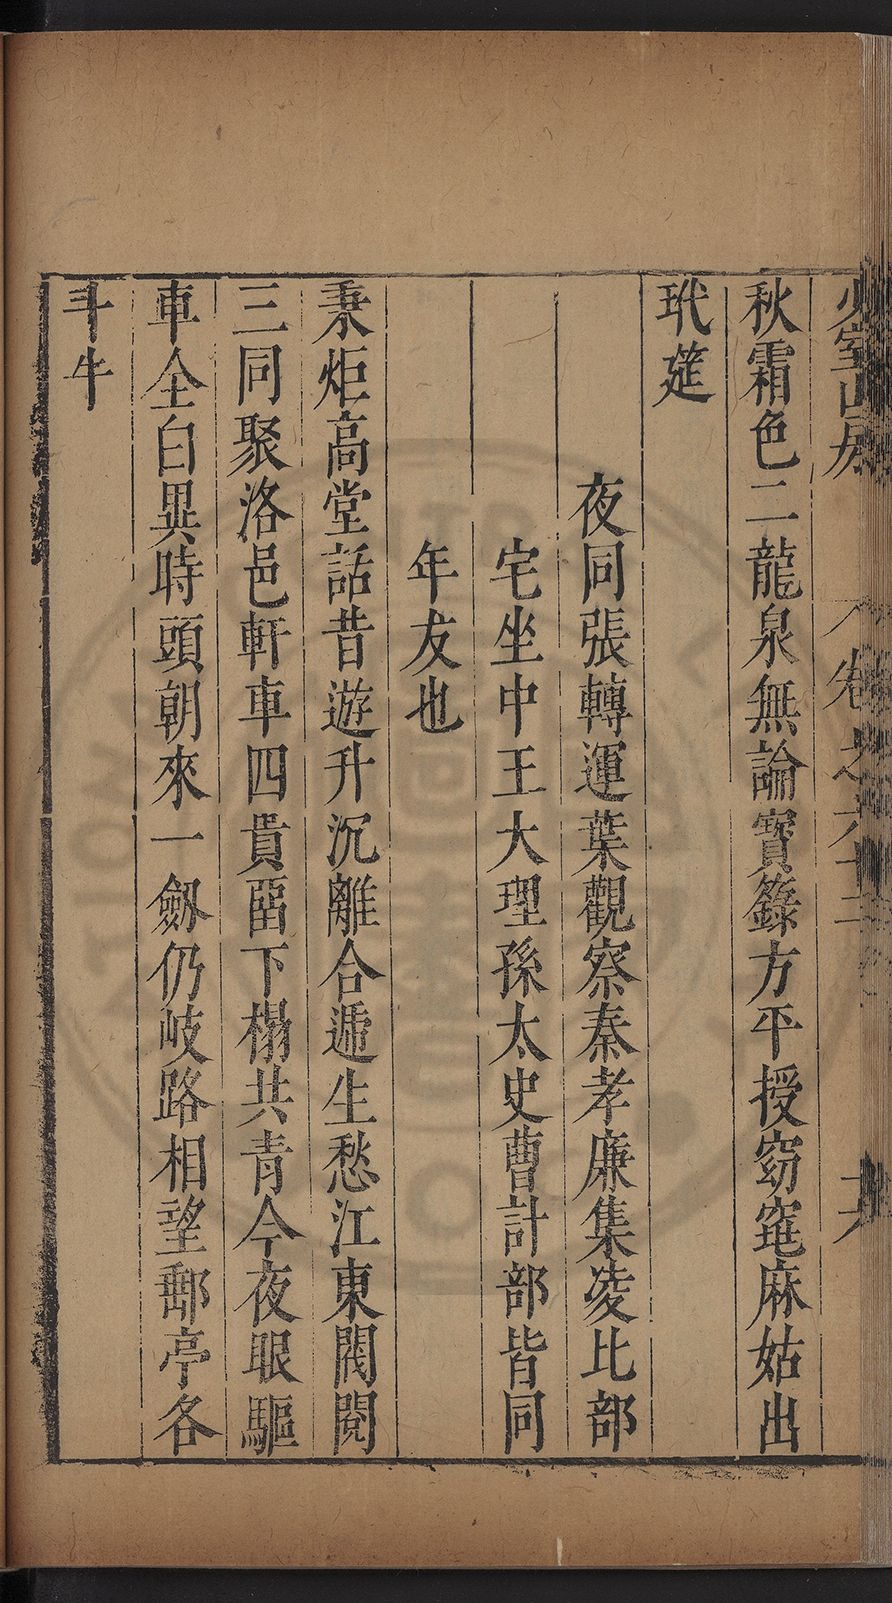 少室山房 卷之六十二
秋霜色二龍泉無論寶籙方平授窈窕麻姑出
玳筵
夜同張轉運葉觀察秦孝廉集凌比部
宅坐中王大理孫太史曹計部皆同
年友也
秉炬高堂話昔遊升沉離合遞生愁江東閥閱
三同聚洛邑軒車四貴畱下榻共青今夜眼驅
車全白異時頭朝來一劔仍岐路相望郵亭各
斗牛